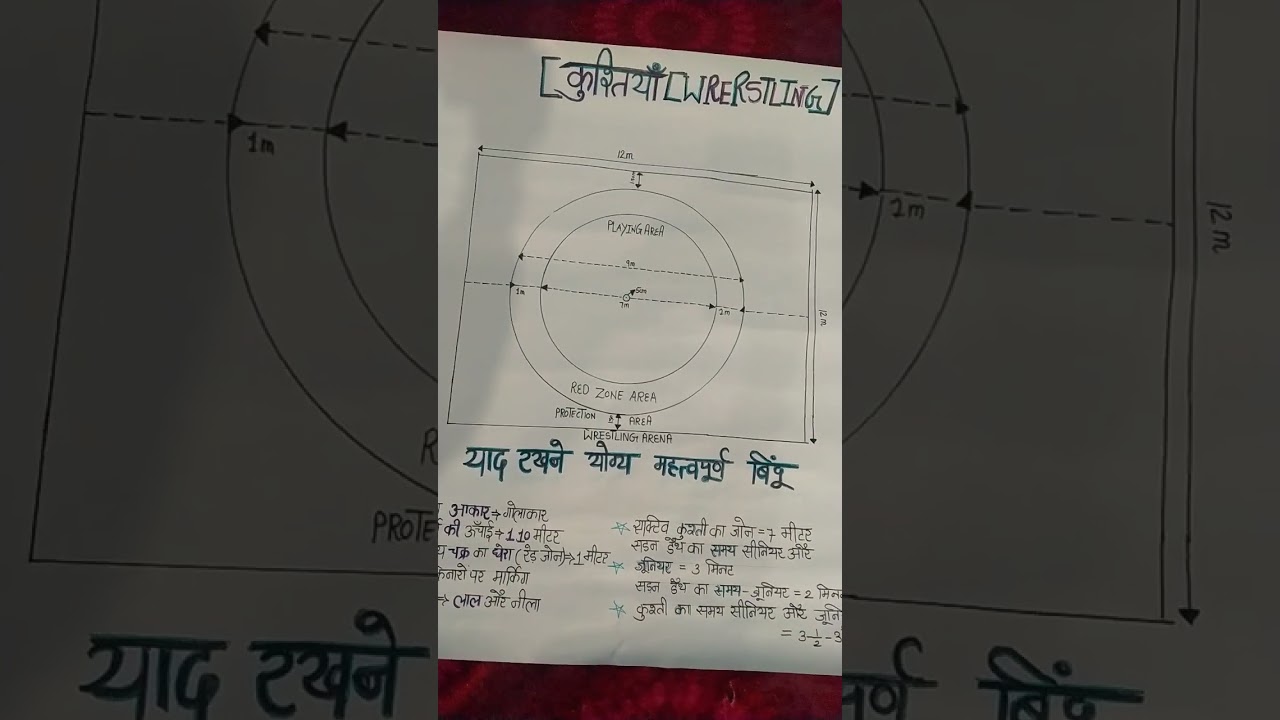 [कुश्तियाँ [WRERSTLING]
12m
PLAYING AREA
9m
5cm
1m
7m
2m
12m
RED ZONE AREA
PROTECTION AREA
WRESTLING ARENA
याद रखने योग्य महत्वपूर्ण बिंदू
आकार → गोलाकार
की ऊँचाई → 1.10 मीटर
चक्र का घेरा (रेड जोन) → 1 मीटर
किनारों पर मार्किंग
→ लाल और नीला
☆ सक्टिव कुश्ती का जोन = 7 मीटर
सडन डैथ का समय सीनियर और
☆ जूनियर = 3 मिनट
सडन डैथ का समय - जूनियर = 2
☆ कुश्ती का समय सीनियर और
= 3-1/2-3